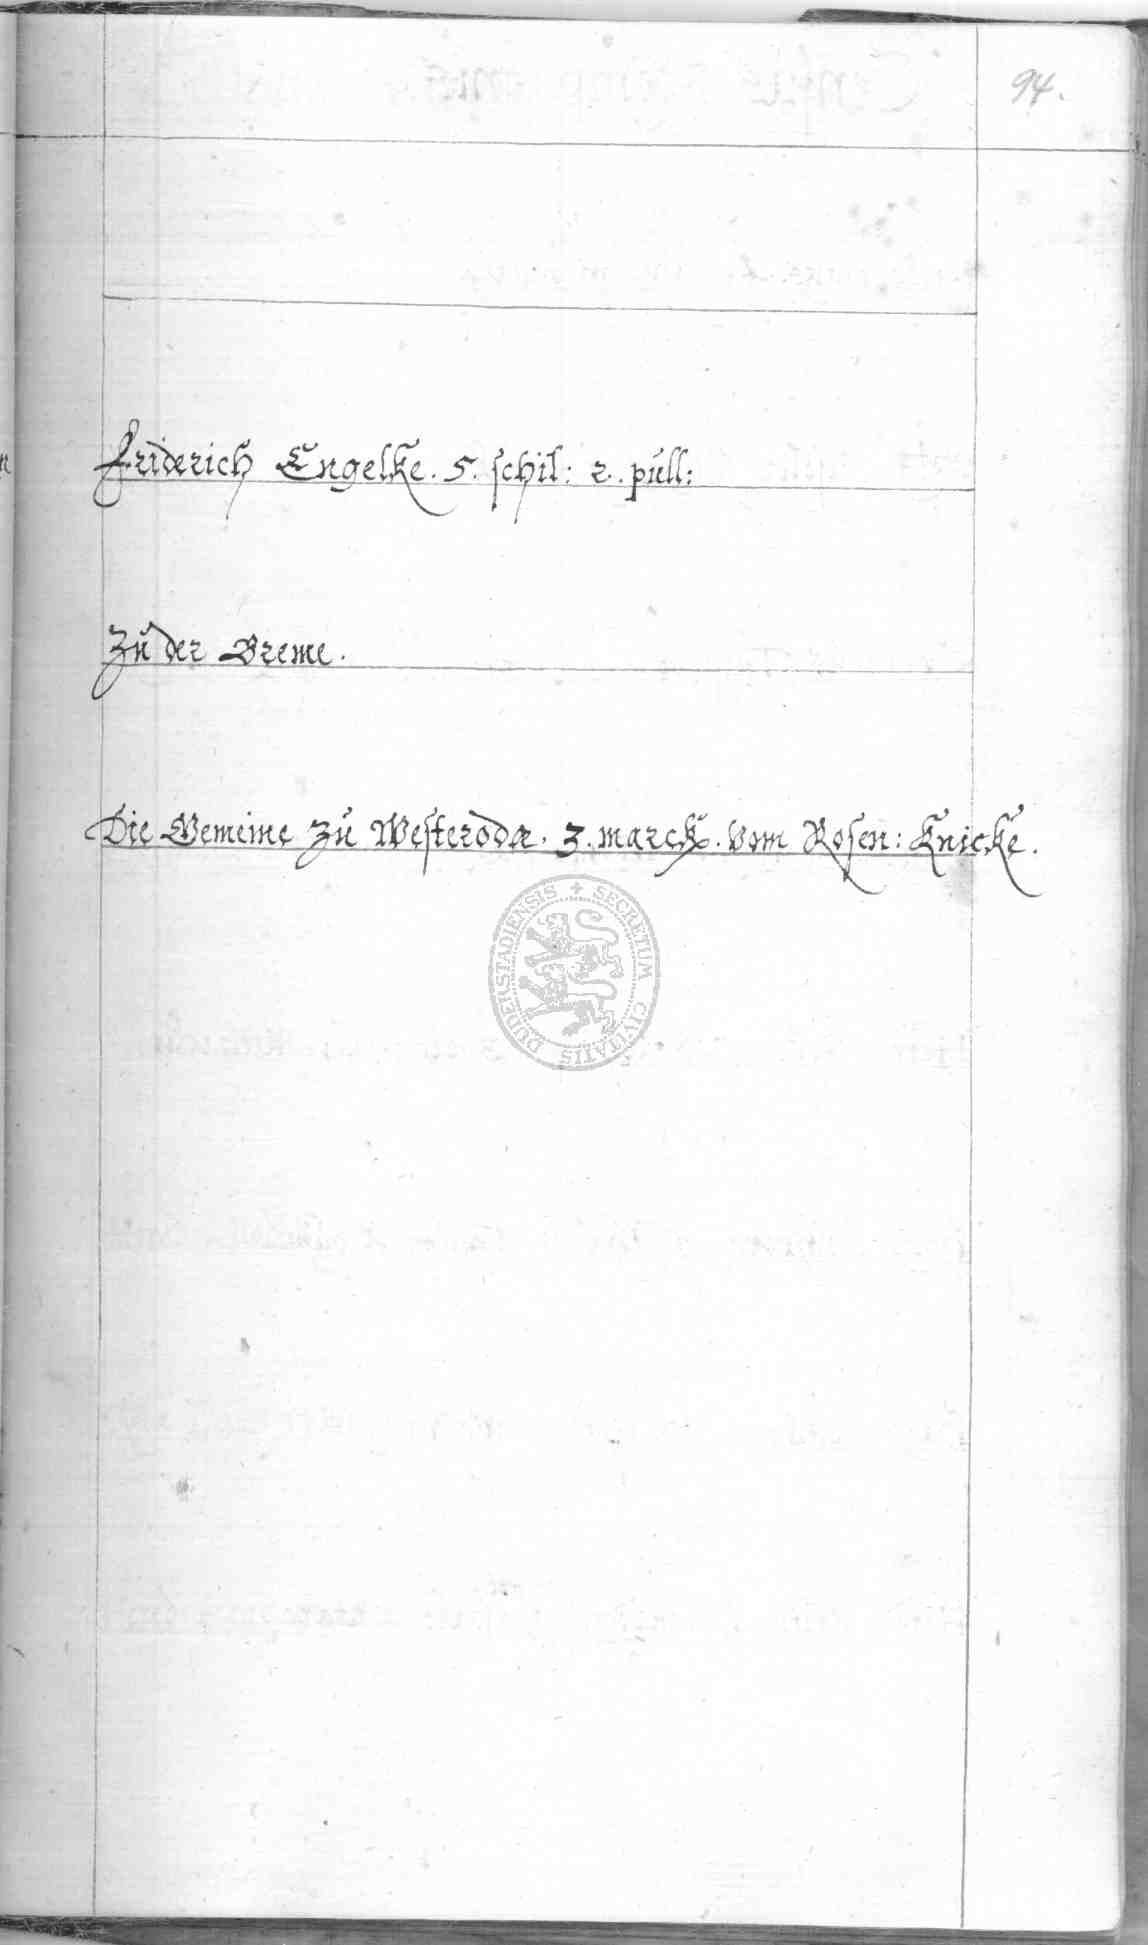 94.
Friderich Engelke. 5. schil: 2. pull:
Zu der Breme.
Die Gemeine zu Westeroda. 3. marck. vom Rosen: Knicke.
SECRETUM CIVITATIS DUDERSTADIENSIS